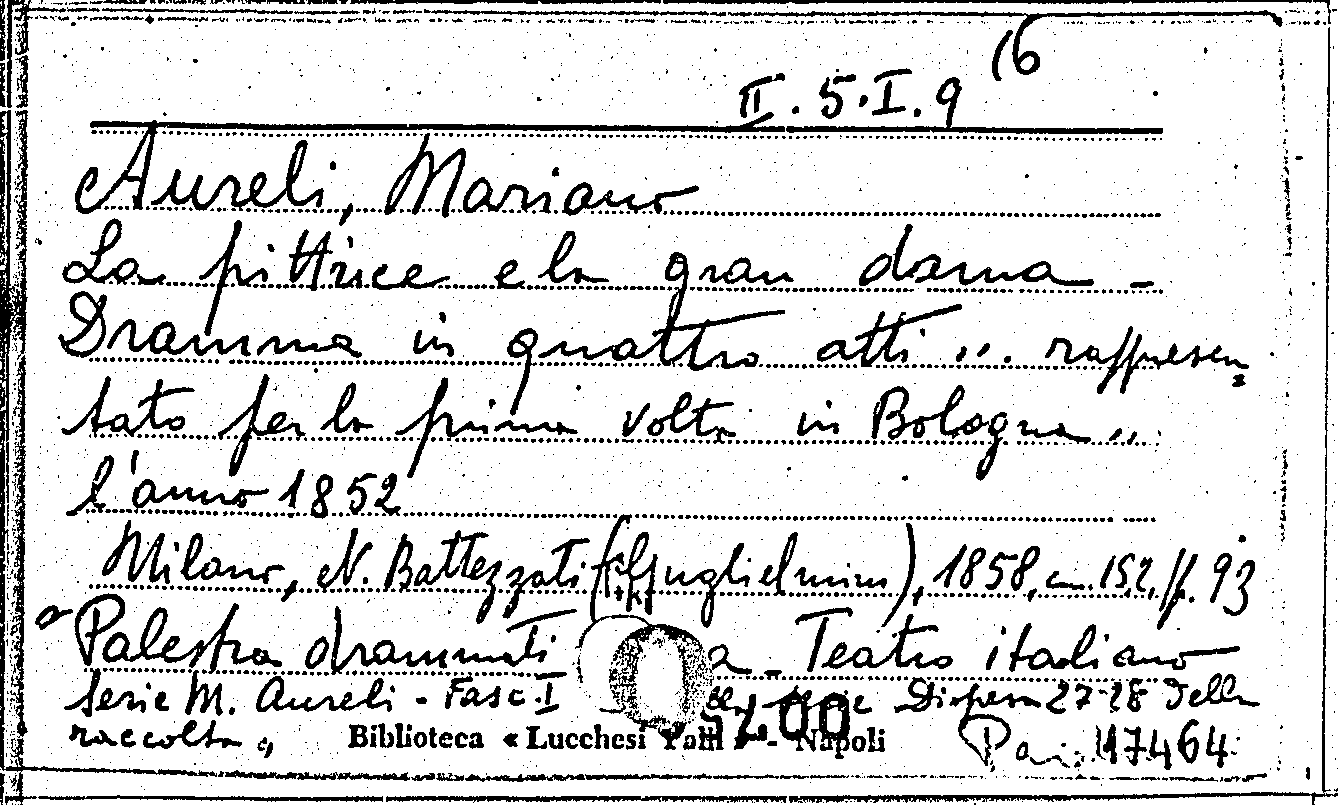 II.5.I.9 (6
Aureli, Mariano
La pittrice e la gran dama -
Dramma in quattro atti ... rappresen=
tato per la prima volta in Bologna ..
l'anno 1852
Milano, N. Battezzati (Guglielmini), 1858, cm. 15,2, pp. 93
Palestra drammati a - Teatro italiano
Serie M. Aureli - Fasc. I Dispesa 27-28 della
raccolta „
Biblioteca « Lucchesi Palli » - Napoli
17464